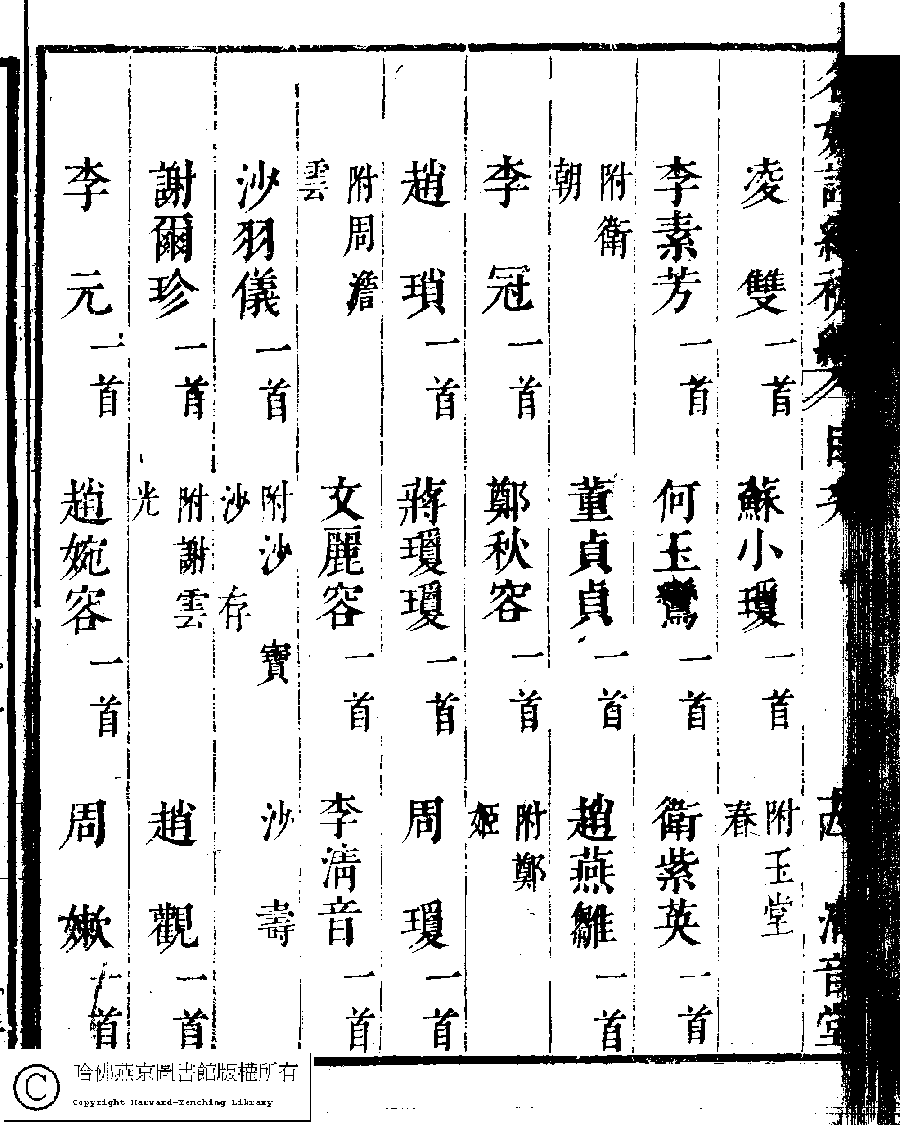 凌雙一首 蘇小瓊一首 附玉堂春
李素芳一首 何玉鸞一首 衛紫英一首
附衛朝 董貞貞一首 趙燕雛一首
李冠一首 鄭秋容一首 附鄭姬
趙瑣一首 蔣瓊瓊一首 周瓊一首
附周澹雲 文麗容一首 李清音一首
沙羽儀一首 附沙寶 沙存 沙壽
謝爾珍一首 附謝雲光 趙觀一首
李元一首 趙婉容一首 周嫩一首
哈佛燕京圖書館版權所有
Copyright Harvard-Yenching Library